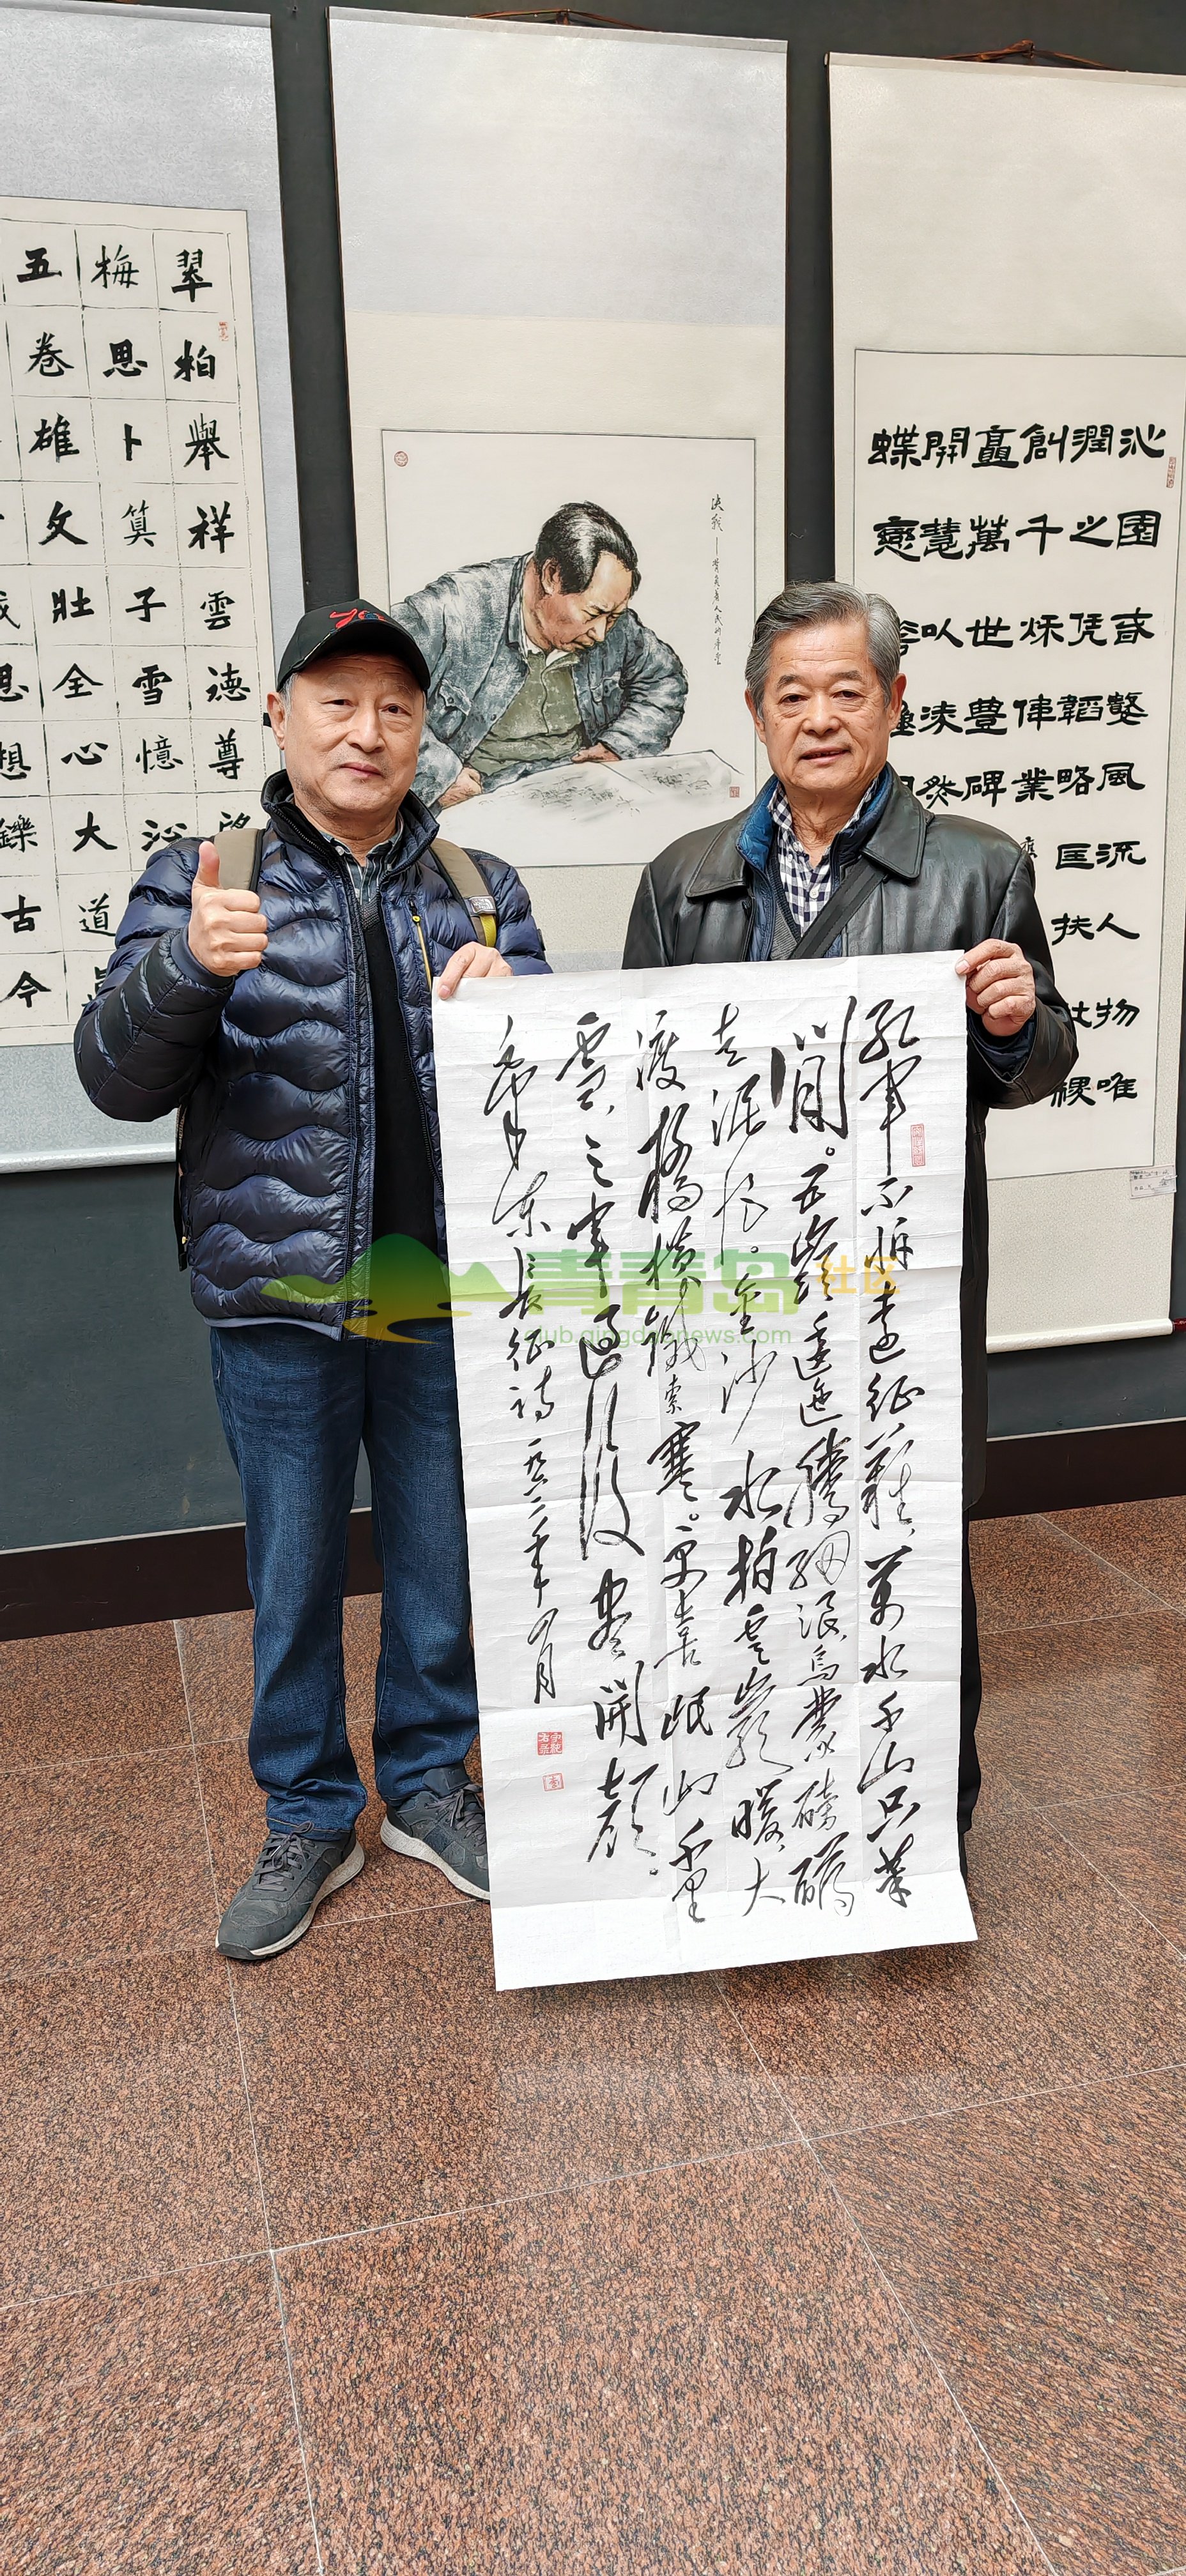 翠柏舉祥雲德尊望
梅思卜算子雪憶沁
五卷雄文壯全心大道
思想鑠古今
决戰
沁園春 風流人物唯
潤之凭韜略匡扶社稷
創千秋偉業
矗萬世豊碑
開慧以淒然
蝶戀
紅軍不怕遠征難，萬水千山只等
閒。五嶺逶迤騰細浪，烏蒙磅礴
走泥丸。金沙水拍雲巖暖，大
渡橋橫鐵索寒。更喜岷山千里
雪。三軍過後盡開顏。
毛澤東長征詩 一九六二年四月
青青岛社区
club.qingdaonews.com